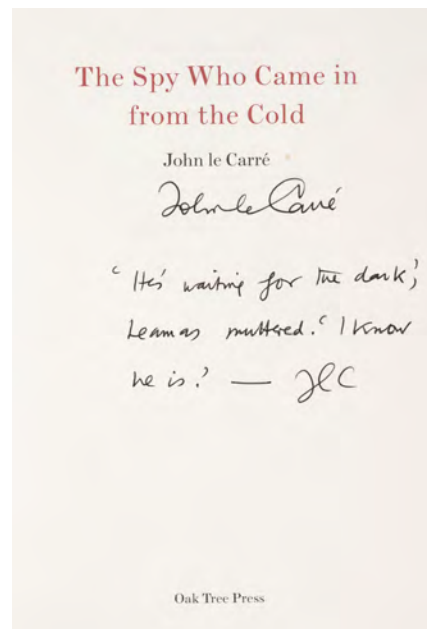 The Spy Who Came in
from the Cold
John le Carré
John le Carré
‘He's waiting for the dark’,
Leamas muttered. ‘I know
he is.’ — JlC
Oak Tree Press